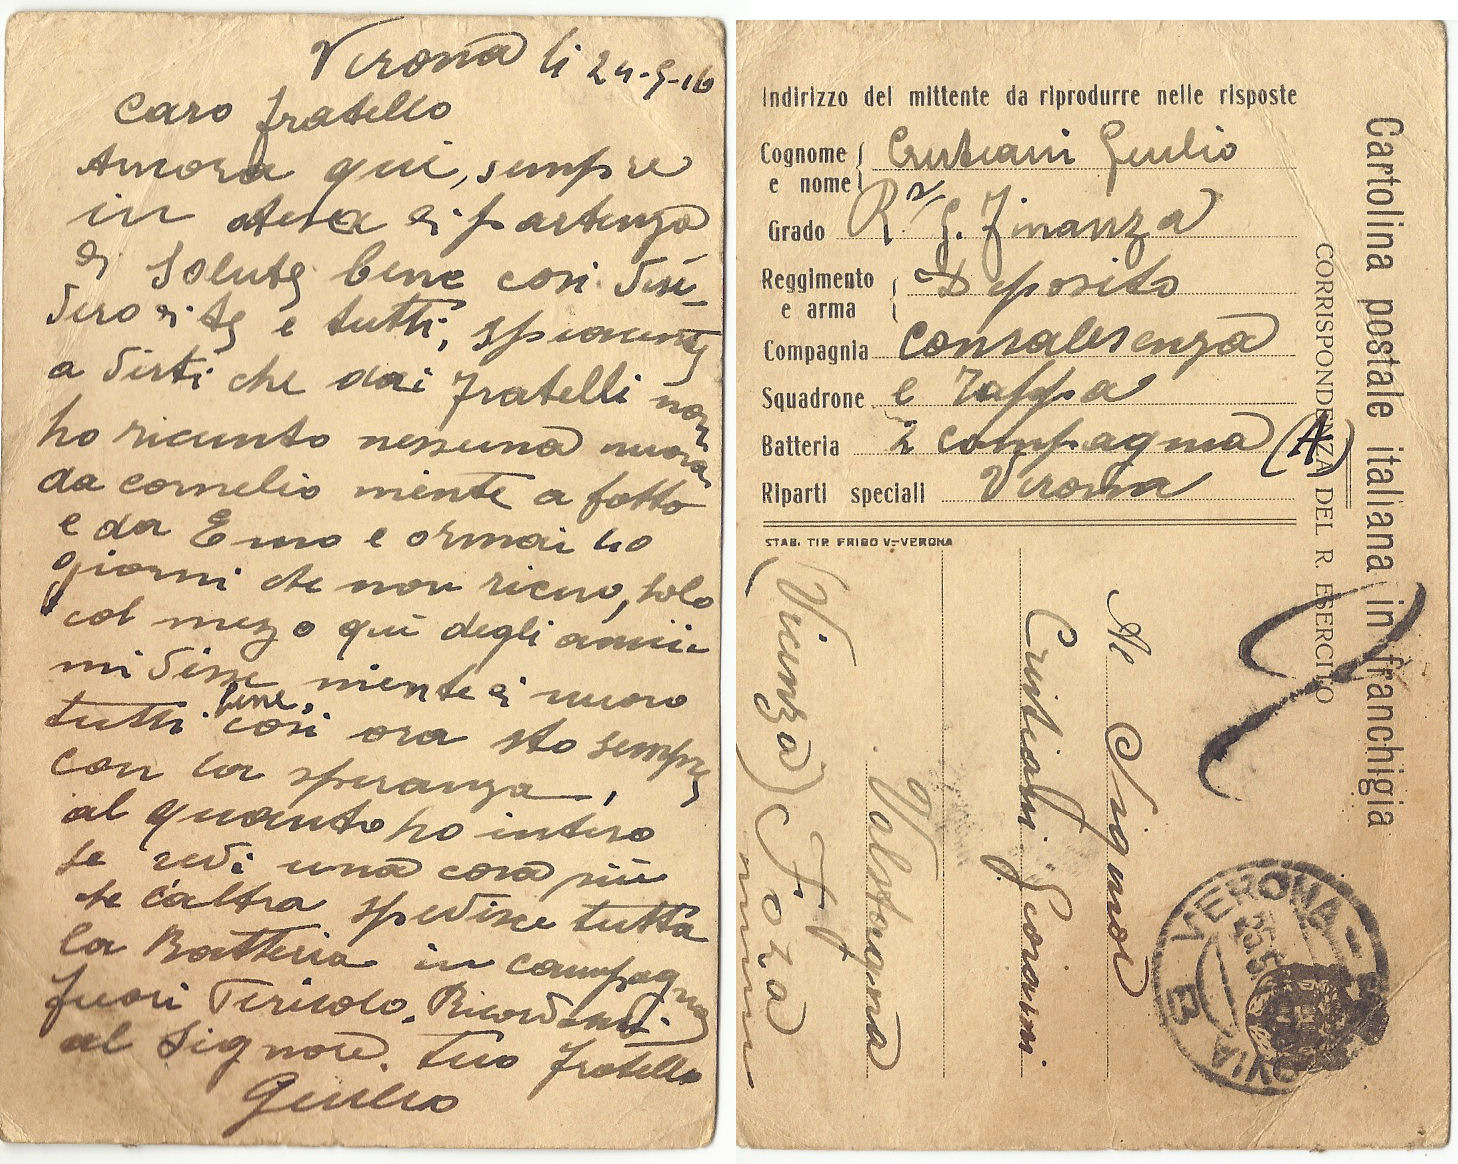 Verona li 24-5-16
Caro fratello
Ancora qui, sempre
in atesa di partenza
di Salute bene cosi desi-
dero di te e tutti, spiacente
a dirti che dai fratelli non
ho ricevuto nessuna nuova
da Cornelio niente a fatto
e da Emo e ormai 40
giorni che non ricevo, solo
col mezzo qui degli amici
mi disse, niente di nuovo
tutti bene, cosi ora sto sempre
con la speranza,
al quanto ho inteso
se vedi una cosa più
te l'altra spedisce tutta
la Batteria in campagna
fuori Pericolo. Ricordami
al Signore. tuo fratello
Giulio
Indirizzo del mittente da riprodurre nelle risposte
Cognome e nome Cristiani Giulio
Grado Ra G. Finanza
Reggimento e arma Deposito
Compagnia Convalescenza
Squadrone e Tappa
Batteria 2 Compagnia (A)
Riparti speciali Verona
STAB. TIP. FRIGO V.-VERONA
Cartolina postale italiana in franchigia
CORRISPONDENZA DEL R. ESERCITO
Al Signor
Cristiani Giovanni
Valstagna
(Vicenza) Foza
VERONA
FERROVIA